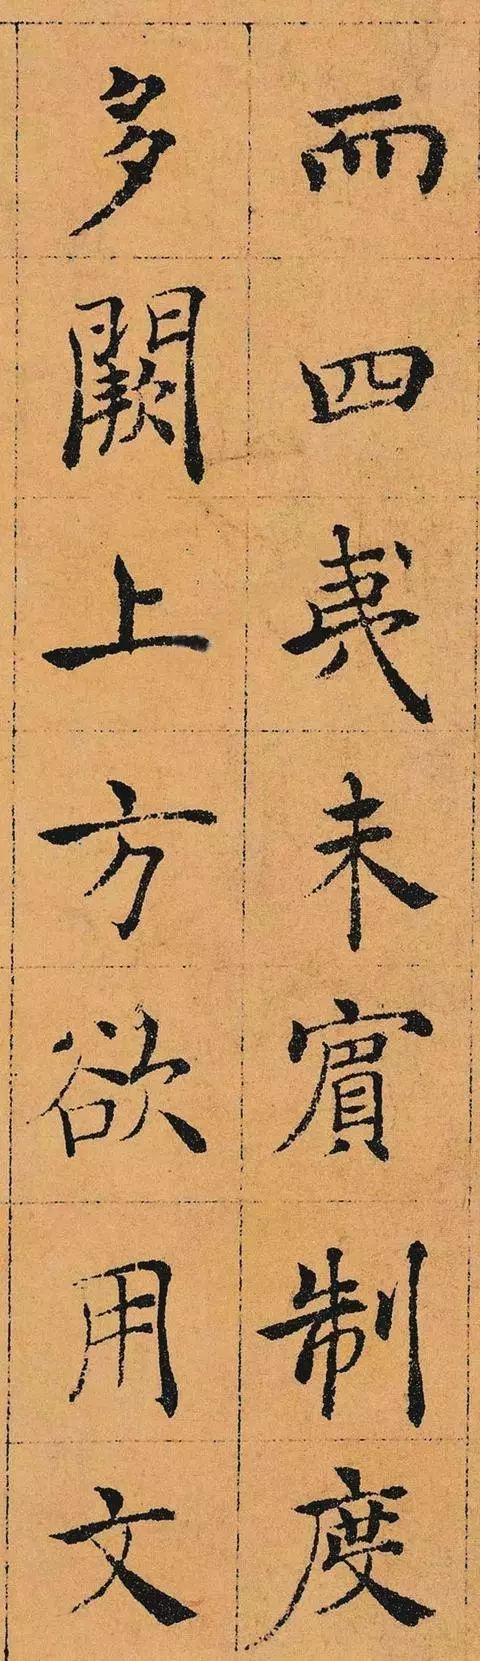 而四夷未賓制度
多闕上方欲用文